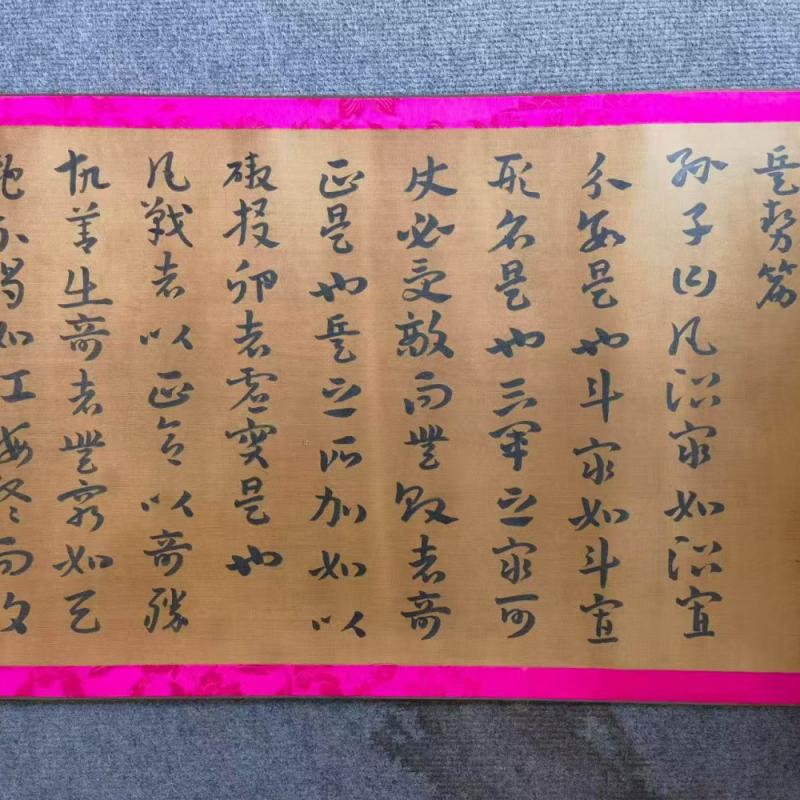 兵勢篇
孫子曰凡治眾如治寡
分數是也鬥眾如鬥寡
形名是也三軍之眾可
使必受敵而無敗者奇
正是也兵之所加如以
碫投卵者虛實是也
凡戰者以正合以奇勝
故善出奇者無窮如天
地不竭如江海終而復